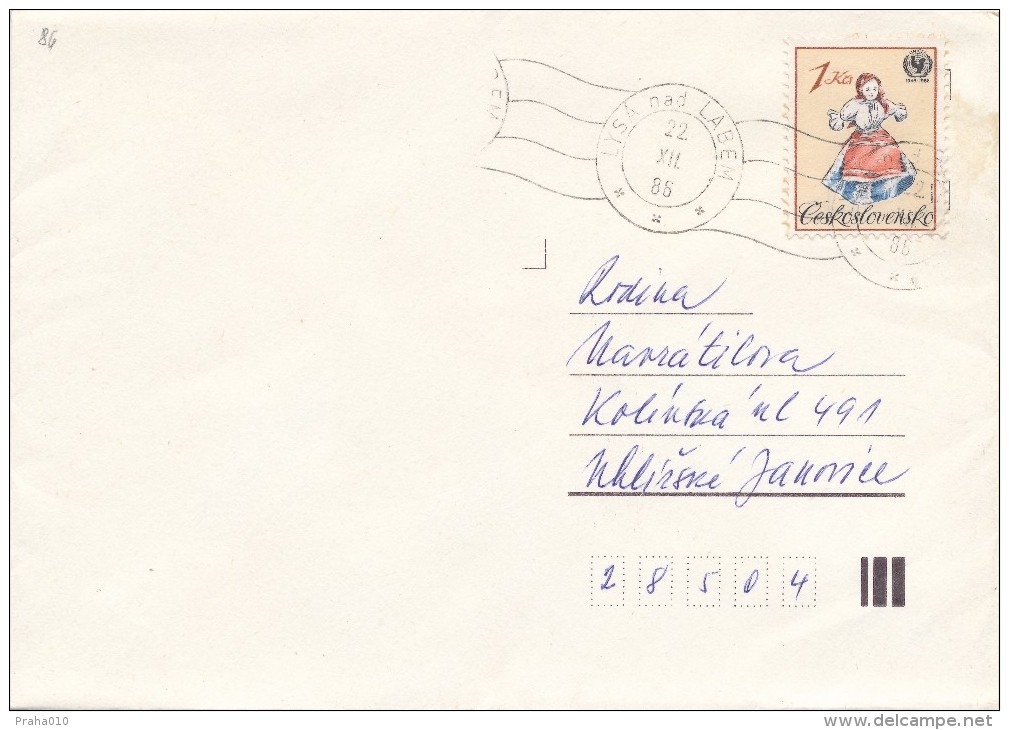 86
1 Kčs
LYSÁ nad LABEM
22
XII.
86
Československo
86
Rodina
Navrátilova
Kolínská ul 491
Uhlířské Janovice
28504
Praha010
www.delcampe.net